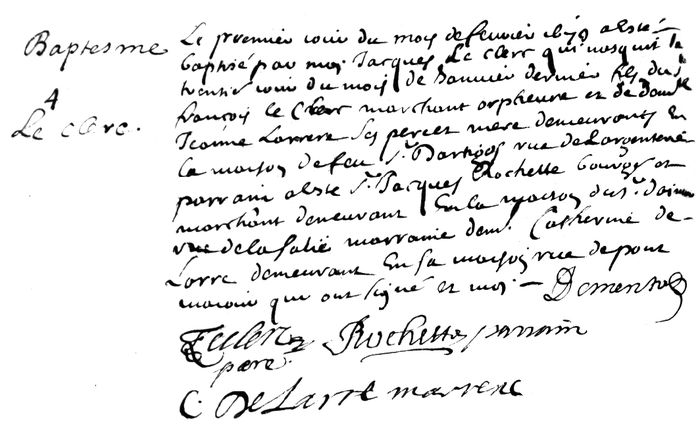 Baptesme
4
Le Clerc.
Le premier jour du mois de feuvrier a esté
baptisé par moi Jacques Le Clerc qui nasquit le
trentie jour du mois de Januier dernier fils du Sr
francois le Clerc marchant orpheure et de
Jeanne Larrere ses pere et mere demeurants En
la maison de feu Sr Dartigos rue de Largenterie
parrain a esté Sr Jacques Rochette bourgois et
marchant demeurant En la maison du Sr
rue de la Salie marraine Catherine de
Larre demeurant En sa maison rue de pont
maiour qui ont signé et moi —
Leclerc Rochette parrain
pere
C. De Larre marrene